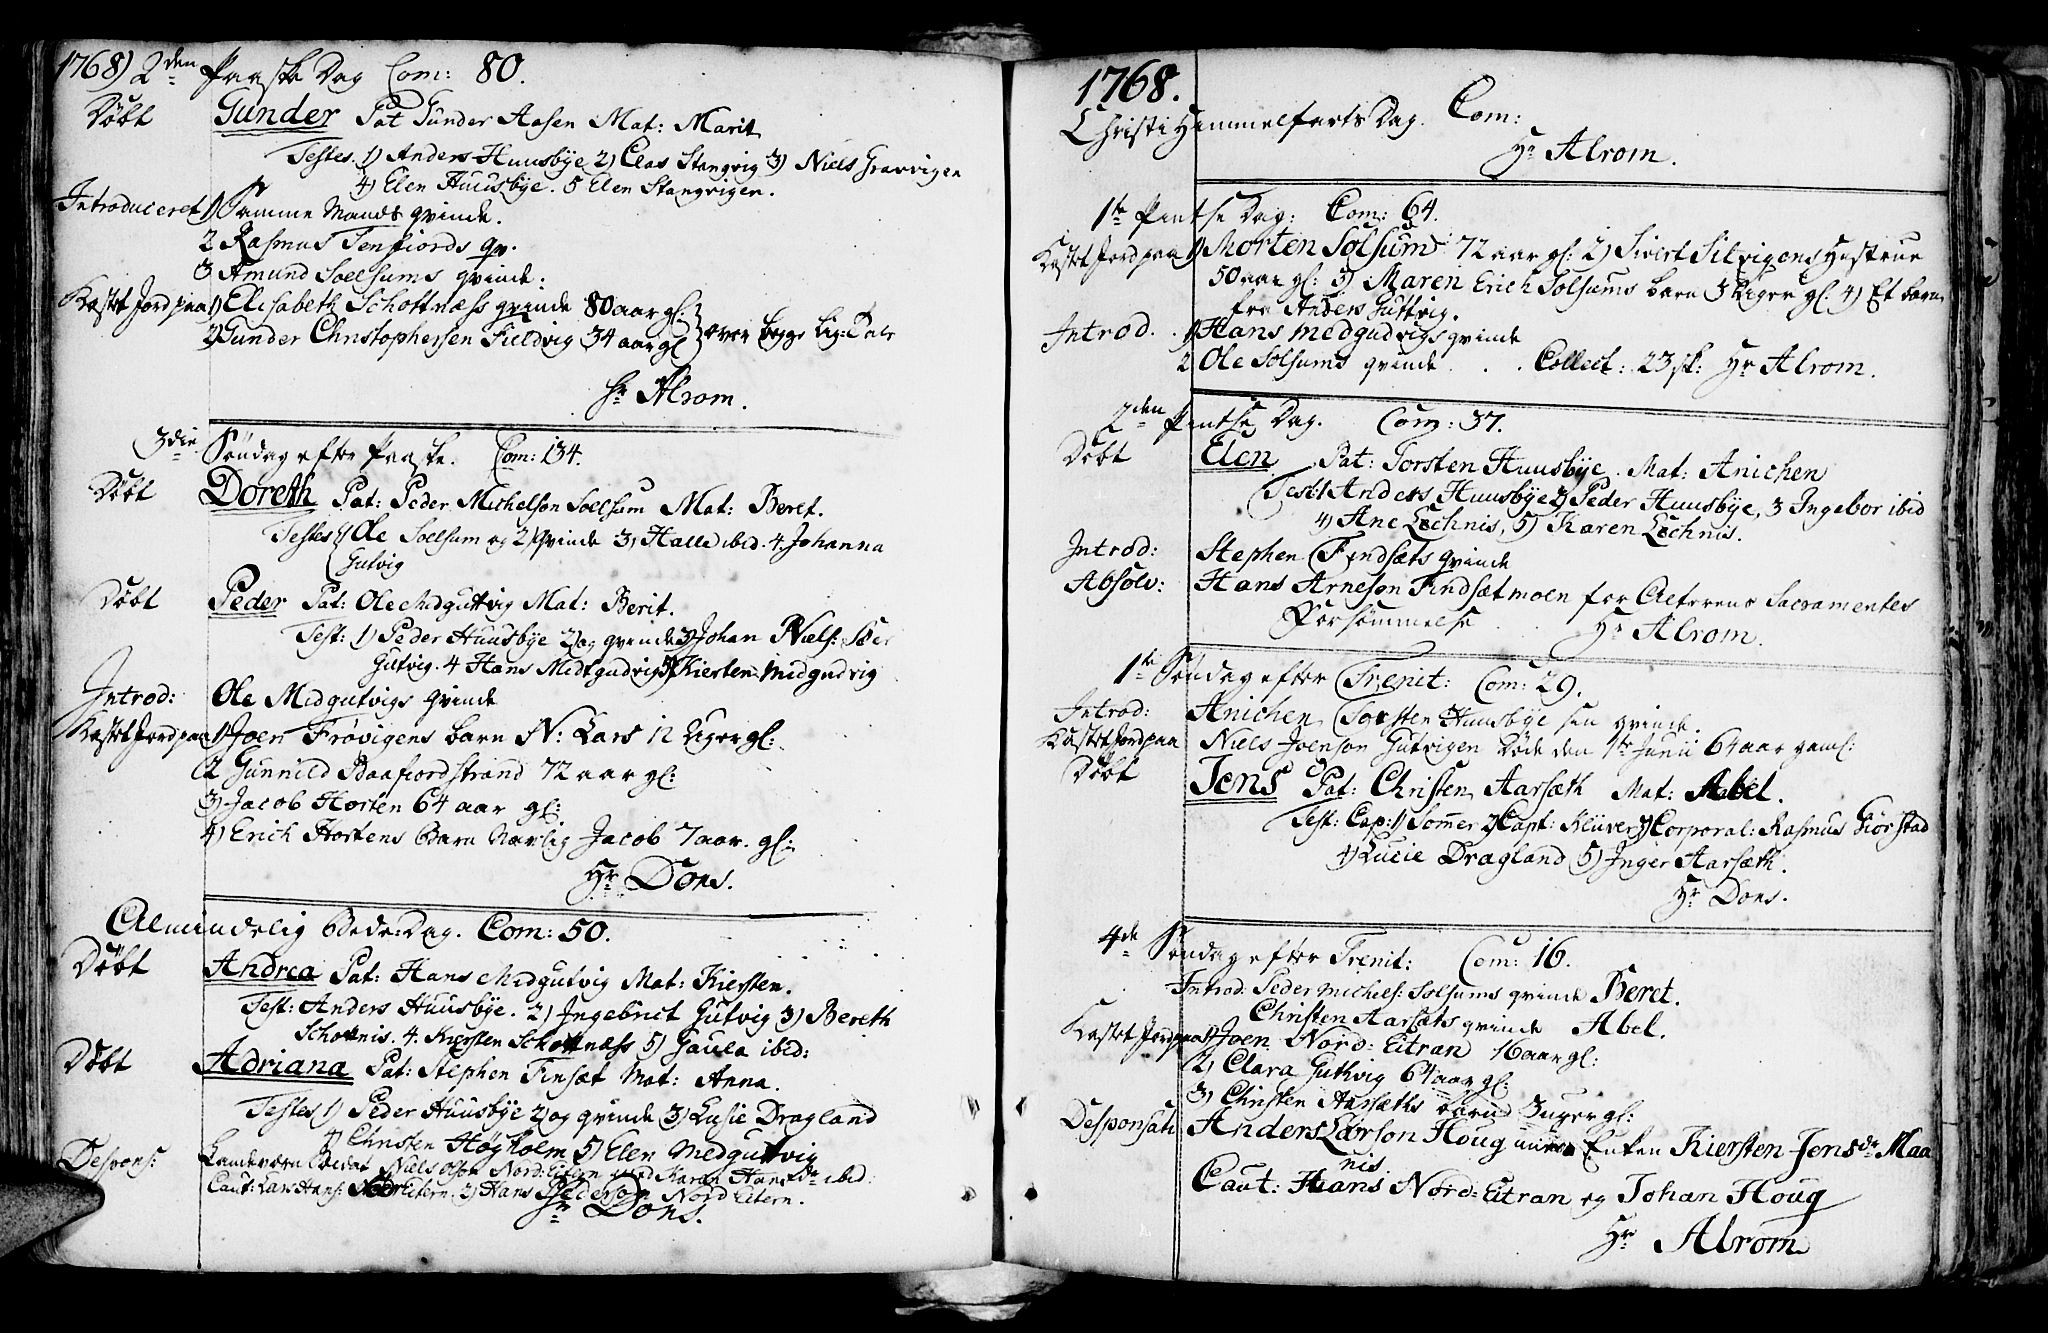 1768) 2den Paaske Dag Com: 80.
Döbt Gunder Pat Gunder Aasen Mat: Marit
Testes. 1) Anders Huusbÿe 2) Clas Stangvig 3) Niels Gravvigen
4) Elen Huusbÿe. 5 Elen Stangvigen.
Introduceret 1) Samme Mands qvinde.
2 Rasmus Tenfiords qv.
3 Amund Soelsums qvinde.
Kastet Jord paa 1) Elisabeth Schottnæss qvinde 80 aar gl:
2) Gunder Christophersen Fieldvig 34 aar gl over begge Lig:Tale
Hr Alrom.
3die Söndag efter Paaske. Com: 134.
Döbt Doreth Pat: Peder Michelson Soelsum Mat: Beret.
Testes 1) Ole Soelsum og 2) qvinde 3) Halle ibid. 4. Johanna
Gutvig
Döbt Peder Pat: Ole Midguttvig Mat: Berit.
Test: 1) Peder Huusbÿe 2) og qvinde 3) Johan Niels:
Gutvig. 4 Hans Midtgudvig 5) Kiersten Midgudvig
Introd: Ole Midgutvigs qvinde
Kastet Jord paa 1) Joen Frøvigens barn N: Lars 12 Uger gl:
2 Gunnild Baafiordstrand 72 aar gl:
3) Jacob Horten 64 aar gl:
4) Erich Hortens Barn Navnlig Jacob 7 aar. gl:
Hr Dons.
Almindelig Bede:Dag. Com: 50.
Döbt Andrea Pat: Hans Midgutvig Mat: Kiersten.
Test: Anders Huusbÿe. 2) Ingebrict Gutvig 3) Bereth
Schottnis. 4. Kiersten Schottnæss 5) Gaula ibid:
Döbt Adriana Pat: Stephen Finsæt Mat: Anna.
Testes 1) Peder Huusbÿe 2) og qvinde 3) Lusie Dragland
4) Christen Høyholm 5) Elen Medguttvig
Despons: Landevern Soldat Niels Olson Nord:Eitern med Karen Hansda ibid.
Caut: Lars Hans: Nord Eitern. 2) Hans Pederson Nord Eitern.
Hr Dons.
1768.
Christi Himmelfarts Dag. Com:
Hr Alrom.
1te Pintse Dag: Com: 64.
Kastet Jord paa 1) Morten Solsum 72 aar gl: 2) Sivert Silvigens Hustrue
50 aar gl: 3) Maren Erich Solsums barn 3 Uger gl: 4) Et barn
fra Anders Guttvig.
Introd. 1) Hans Medgudvigs qvinde
2 Ole Solsums qvinde . . Collect: 23 sk: Hr Alrom.
2den Pintse Dag. Com: 37.
Döbt Elen Pat: Torsten Huusbÿe. Mat: Anichen
Test: 1 Anders Huusbÿe 2) Peder Huusbÿe, 3 Ingebor ibid
4) Ane Lechnis, 5) Karen Lechnis.
Introd: Stephen Findsæts qvinde
Absolv: Hans Arneson Findsætmoen for Alterens Sacramentes
Forsömmelse Hr Alrom.
1te Söndag efter Trenit: Com: 29.
Introd: Anichen Torsten Huusbÿe sin qvinde.
Kastet Jord paa Niels Joenson Gutvigen døde den 1te Junii 64 aar gaml:
Döbt Jens Pat: Christen Aarsæth Mat: Abel.
Test: Cap: 1) Sommer 2) Capt: Klüver 3) Corporal: Rasmus Kiörstad
4) Lucie Dragland 5) Inger Aarsæth.
Hr Dons.
4de Söndag efter Trenit: Com: 16.
Introd: Peder Michels: Solsums qvinde Beret.
Christen Aarsæts qvinde Abel.
Kastet Jord paa 1) Joen Nord: Eitran 16 aar gl:
2) Clara Guthvig 64 aar gl:
3) Christen Aarsæths barn 3 uger gl:
Desponsati Anders Larson Houg Enken Kiersten Jensdr Maa
nis.
Caut: Hans Nord:Eitran og Johan Houg
Hr Alrom